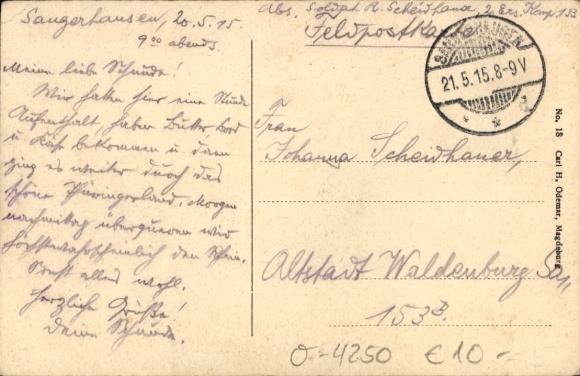 Sangerhausen, 20.5.15.
9 00 abends.
Meine liebe Schnude!
Wir hatten hier eine Stunde
Aufenthalt, haben Butterbrot
u Kaffe bekommen u dann
ging es weiter durch das
schöne Thüringerland. Morgen
nachmittag überqueren wir
höchstwahrscheinlich den Rhein.
Sonst alles wohl.
Herzliche Grüße!
Deine Schnude.
Abs. Soldat K. Scheidhauer, 2. Ers. Komp. 133
Feldpostkarte
SANGERHAUSEN
21.5.15.8-9V
Frau
Johanna Scheidhauer,
Altstadt Waldenburg Sa.,
153 B.
No. 18 Carl H. Odemar, Magdeburg
0-4250 € 10-